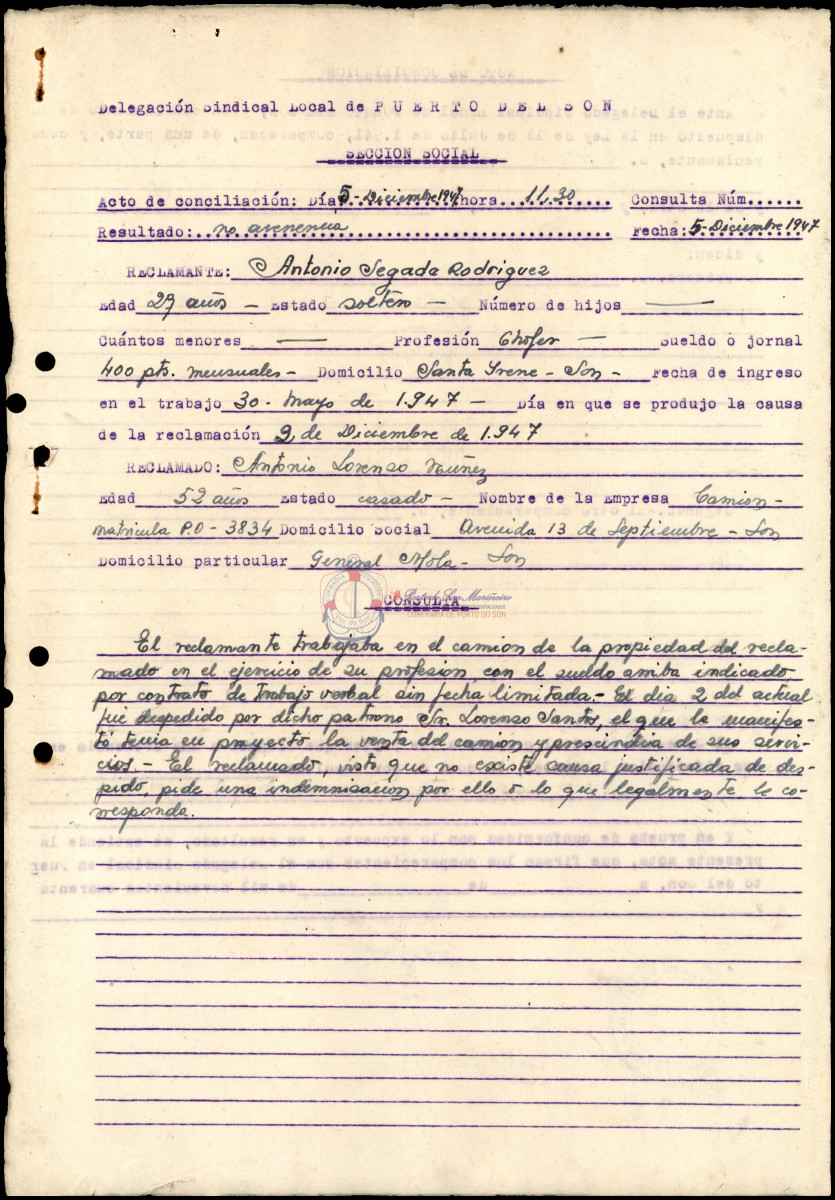 Delegación Sindical Local de P U E R T O  D E L  S O N
SECCION SOCIAL
Acto de conciliación: Día 5-Diciembre 1947 hora 11,30 Consulta Núm......
Resultado: no avenencia Fecha: 5-Diciembre 1947
RECLAMANTE: Antonio Segada Rodriguez
Edad 29 años - Estado soltero - Número de hijos —
Cuántos menores — Profesión Chofer - Sueldo o jornal
400 pts. mensuales - Domicilio Santa Irene - Son - Fecha de ingreso
en el trabajo 30 - Mayo de 1.947 - Día en que se produjo la causa
de la reclamación 2, de Diciembre de 1.947
RECLAMADO: Antonio Lorenzo Núñez
Edad 52 años Estado casado - Nombre de la Empresa Camion -
matricula P.O - 3834 Domicilio Social Avenida 13 de Septiembre - Son
Domicilio particular General Mola - Son
CONSULTA
El reclamante trabajaba en el camion de la propiedad del recla-
mado en el ejercicio de su profesion, con el sueldo arriba indicado,
por contrato de trabajo verbal sin fecha limitada. - El dia 2 del actual
fue despedido por dicho patrono Sr. Lorenzo Santos, el que le manifes-
tó tenia en proyecto la venta del camion y prescindia de sus servi-
cios. - El reclamado, visto que no existe causa justificada de des-
pido, pide una indemnisacion por ello o lo que legalmente le co-
rresponda.
CONFRARÍA DE PORTO DO SON